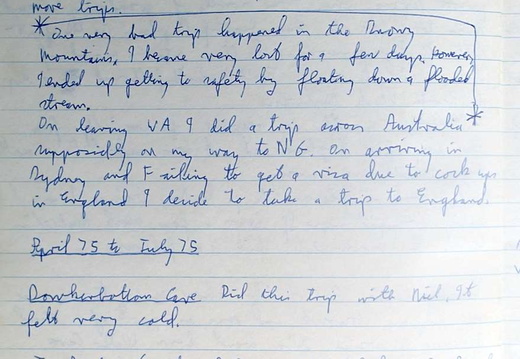 more trips.
* One very bad trip happened in the Snowy
Mountains, I became very lost for a few days. However
I ended up getting to safety by floating down a flooded
stream.
On leaving WA I did a trip across Australia *
supposidly on my way to NG. On arriving in
Sydney and Failing to get a visa due to cock ups
in England I decide to take a trip to England.
April 75 to July 75
Dowkerbottom Cave Did this trip with Neil. It
felt very cold.